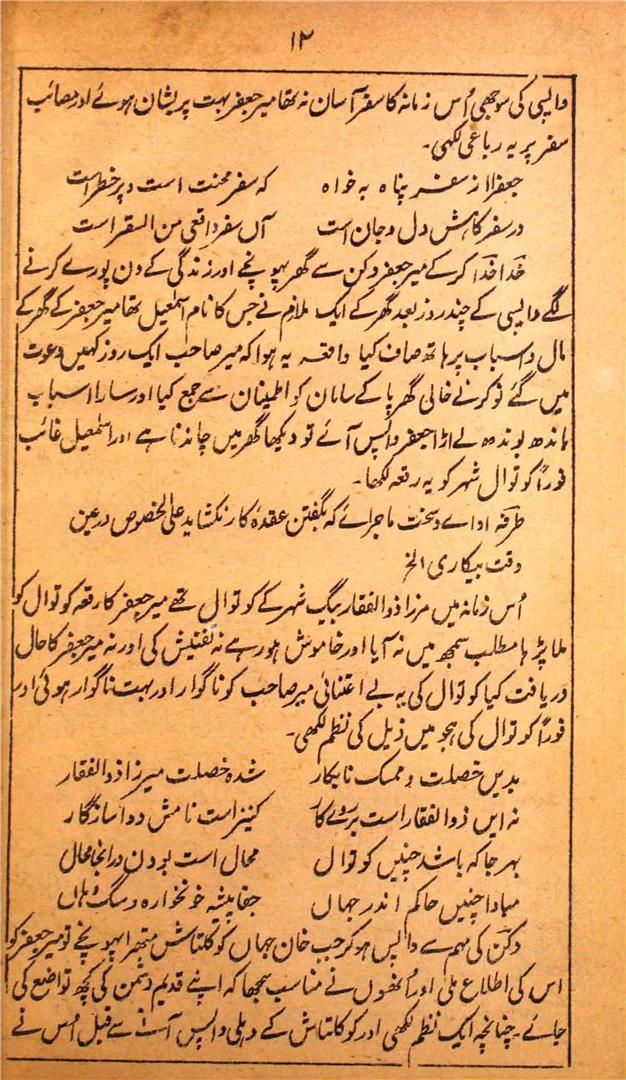 ۱۲
واپسی کی سوجھی اُس زمانہ کا سفر آسان نہ تھا میر جعفر بہت پریشان ہوئے اور مصائب
سفر پر یہ رباعی لکھی۔
جعفرا از سفر پناہ بہ خواہ کہ سفر محنت است و پر خطر است
در سفر کاہش دل و جان است آں سفر واقعی من السقر است
خدا خدا کر کے میر جعفر دکن سے گھر پہونچے اور زندگی کے دن پورے کرنے
لگے واپسی کے چند روز بعد گھر کے ایک ملازم نے جس کا نام اسمٰعیل تھا میر جعفر کے گھر کے
مال و اسباب پر ہاتھ صاف کیا واقعہ یہ ہوا کہ میر صاحب ایک روز کہیں دعوت
میں گئے نوکر نے خالی گھر پا کے سامان کو اطمینان سے جمع کیا اور سارا اسباب
باندھ بوندھ لے اڑا جعفر واپس آئے تو دیکھا گھر میں چاندنا ہے اور اسمٰعیل غائب
فوراً کوتوال شہر کو یہ رقعہ لکھا۔
طرفہ اداے و سخت ماجرائے کہ بگفتن عقدۂ کار نکشاید علی الخصوص در عین
وقت بیکاری الخ
اُس زمانہ میں مرزا ذوالفقار بیگ شہر کے کوتوال تھے میر جعفر کا رقعہ کوتوال کو
ملا پڑھا مطلب سمجھ میں نہ آیا اور خاموش ہو رہے نہ تفتیش کی اور نہ میر جعفر کا حال
دریافت کیا کوتوال کی یہ بے اعتنائی میر صاحب کو ناگوار اور بہت ناگوار ہوئی اور
فوراً کوتوال کی ہجو میں ذیل کی نظم لکھی۔
بدیں خصلت و ممسک نابکار شدہ خصلت میرزا ذوالفقار
نہ ایں ذوالفقار است بر روے کار کنیز است نامش دوا سازگار
بہر جا کہ باشد چنیں کوتوال محال است بودن در انجا محال
مبادا چنیں حاکم اندر جہاں جفا پیشہ خونخوارہ و سگ دہاں
دکن کی مہم سے واپس ہو کر جب خان جہاں کوکلتاش متھرا پہونچے تو میر جعفر کو
اس کی اطلاع ملی اور اُنھوں نے مناسب سمجھا کہ اپنے قدیم دشمن کی کچھ تواضع کی
جائے۔ چنانچہ ایک نظم لکھی اور کوکلتاش کے دہلی واپس آنے سے قبل اُس نے